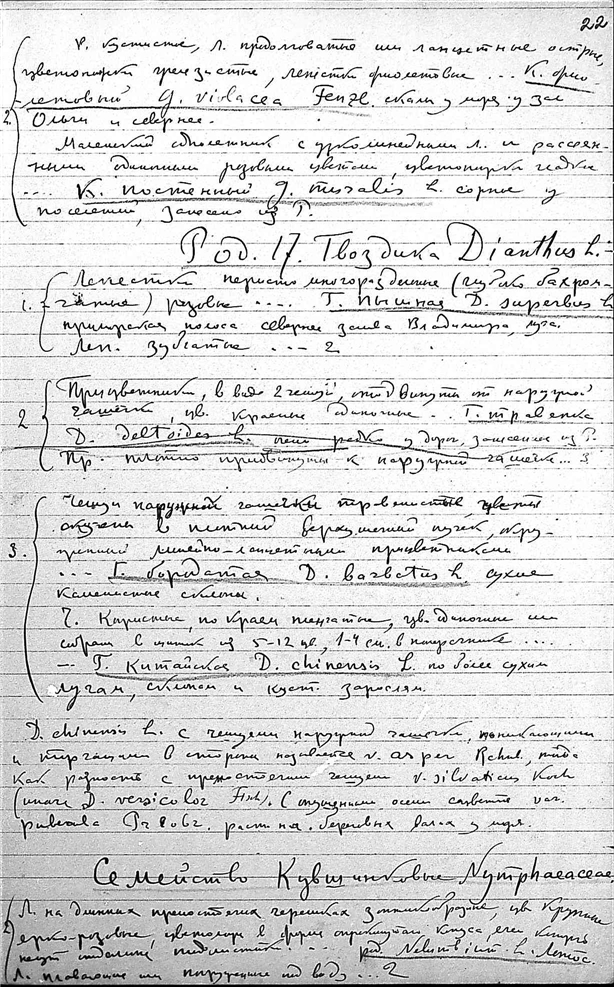 22
Л. продолговатые или ланцетные острые,
цветоножки лепестки фиолетовые ... К. фио
летовый G. violacea Fenzl. скалы у моря у зал
2. Ольги и севернее.
Маленький однолетник с узколинейными Л. и рассеян-
ными одиночными розовыми цветами, цветоножки гладкие
.... К. постенный G. muralis L. сорные у
поселений, занесено из Р.
Род. 17. Гвоздика Dianthus L. -
1. Лепестки перисто многораздельные (глубоко бахром-
чатые) розовые .... Г. пышная D. superbus L
приморская полоса севернее залива Владимира, луга.
Леп. зубчатые ... - 2
2 Прицветники, в виде 2 чешуй, отодвинуты от наружной
чашечки, цв. красные одиночные .. Г. травянка
D. deltoides L. очень редко у дорог, занесенное из Р.
Пр. плотно придвинуты к наружной чашечке ... 3
3. Чешуи наружной чашечки травянистые, цветы
скучены в плотный верхушечный пучек, окру-
женный линейно-ланцетными прицветниками
... Г. бородатая D. barbatus L. сухие
каменистые склоны.
Ч. по краям пленчатые, цв. одиночные или
собраны в из 5-12 цв, 1-4 см. в поперечнике ....
- Г. Китайская D. chinensis L. по более сухим
лугам, склонам и куст. зарослям.
D. chinensis L. с чешуями наружной чашечки,
и торчащими в стороны называется v. asper Rchb,
как разность с чешуями v. silvaticus Koch
(иначе D. versicolor Fisch). С опушенными var.
Prеobr. раст на береговых валах у моря.
Семейство Кувшинковые Nymphaeaceae.
Л. на длинных черешках зонтикообразные, цв. крупные
ярко-розовые, цветоложе в форме опрокинутого конуса
род Nelumbium L. Лотос.
Л. плавающие или погруженные под воду ... 2